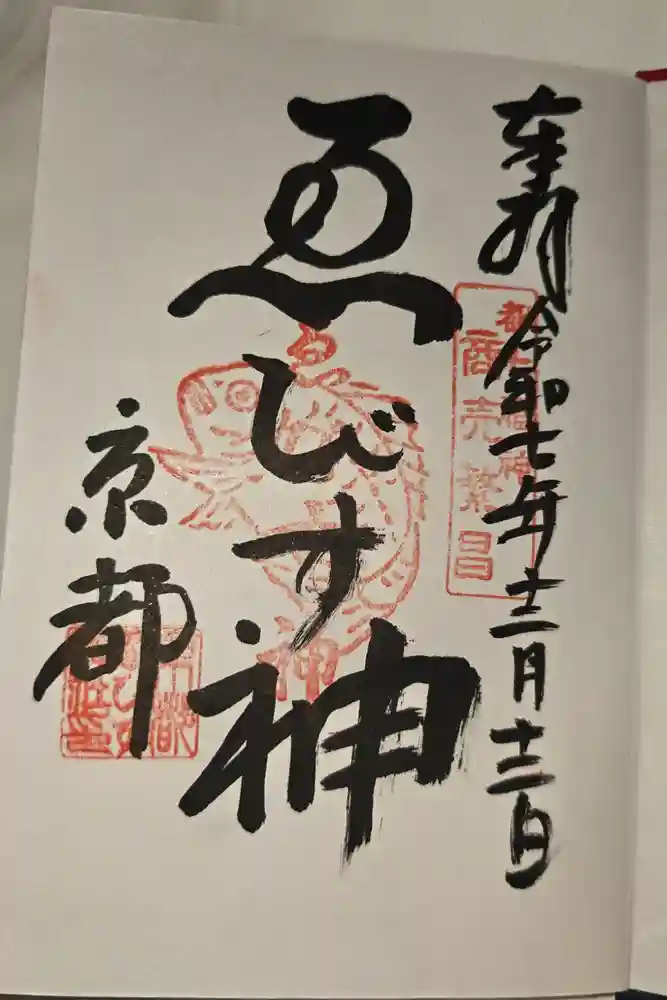 奉拝
令和七年十二月十三日
都七福神
商売繁昌
ゑびす神
京都